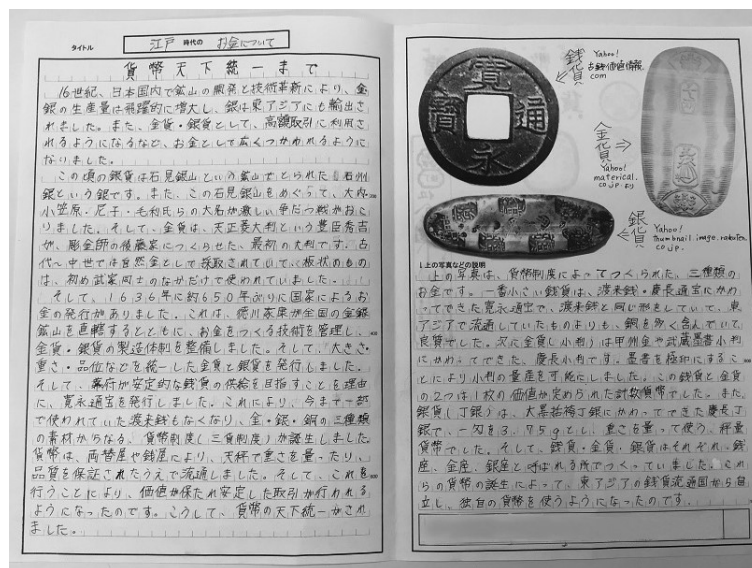 タイトル
江戸 時代の お金について
貨幣天下統一まで
16世紀、日本国内で鉱山の開発と技術革新により、金
銀の生産量は飛躍的に増大し、銀は東アジアにも輸出さ
れました。また、金貨・銀貨として、高額取引に利用さ
れるようになるなど、お金として広くつかわれるように
なりました。
この頃の銀貨は石見銀山という鉱山でとられた「石州
銀という銀です。また、この石見銀山をめぐって、大内・
小笠原・尼子・毛利氏らの大名が激しい争だつ戦がおこ
りました。そして、金貨は、天正菱大判という豊臣秀吉
が、彫金師の後藤家につくらせた、最初の大判です。古
代〜中世では自然金として採取されていて、板状のもの
は、初め武家同士のなかだけで使われていました。
そして、1636年に約650年ぶりに国家によるお
金の発行がありました。これは、徳川家康が全国の金銀
鉱山を直轄するとともに、お金をつくる技術を管理し、
金貨・銀貨の製造体制を整備しました。そして、大きさ・
重さ・品位などを統一した金貨と銀貨を発行しました。
そして、幕府が安定的な銭貨の供給を目指すことを理由
に、寛永通宝を発行しました。これにより、今まで一部
で使われていた渡来銭もなくなり、金・銀・銅の三種類
の素材からなる、貨幣制度(三貨制度)が誕生しました。
貨幣は、両替屋や銭屋により、天秤で重さを量ったり、
品質を保証されたうえで流通しました。そして、これを
行うことにより、価値が保たれ安定した取引が行われる
ようになったのです。こうして、貨幣の天下統一がされ
ました。
銭貨
Yahoo!
古銭価値情報.
com
寛永通寳
金貨
Yahoo!
materical.
co.jp.より
銀貨
Yahoo!
thumbnail.image.rakuten.
co.jp
上の写真などの説明
上の写真は、貨幣制度によってつくられた、三種類の
お金です。一番小さい銭貨は、渡来銭・慶長通宝にかわ
ってできた寛永通宝で、渡来銭と同じ形をしていて、東
アジアで流通していたものよりも、銅を多く含んでいて、
良質でした。次に金貨(小判)は甲州金や武蔵墨書小判
にかわってできた、慶長小判です。墨書を極印にするこ
とにより小判の量産を可能にしました。この銭貨と金貨
の2つは1枚の価値が定められた計数貨幣でした。また、
銀貨(丁銀)は、大黒極印丁銀にかわってできた慶長丁
銀で、一匁を3.75gとし、重さを量って使う、秤量
貨幣でした。そして、銭貨・金貨・銀貨はそれぞれ、銭
座、金座、銀座と呼ばれる所でつくっていました。これ
らの貨幣の誕生によって、東アジアの銭貨流通圏から自
立し、独自の貨幣を使うようになったのです。